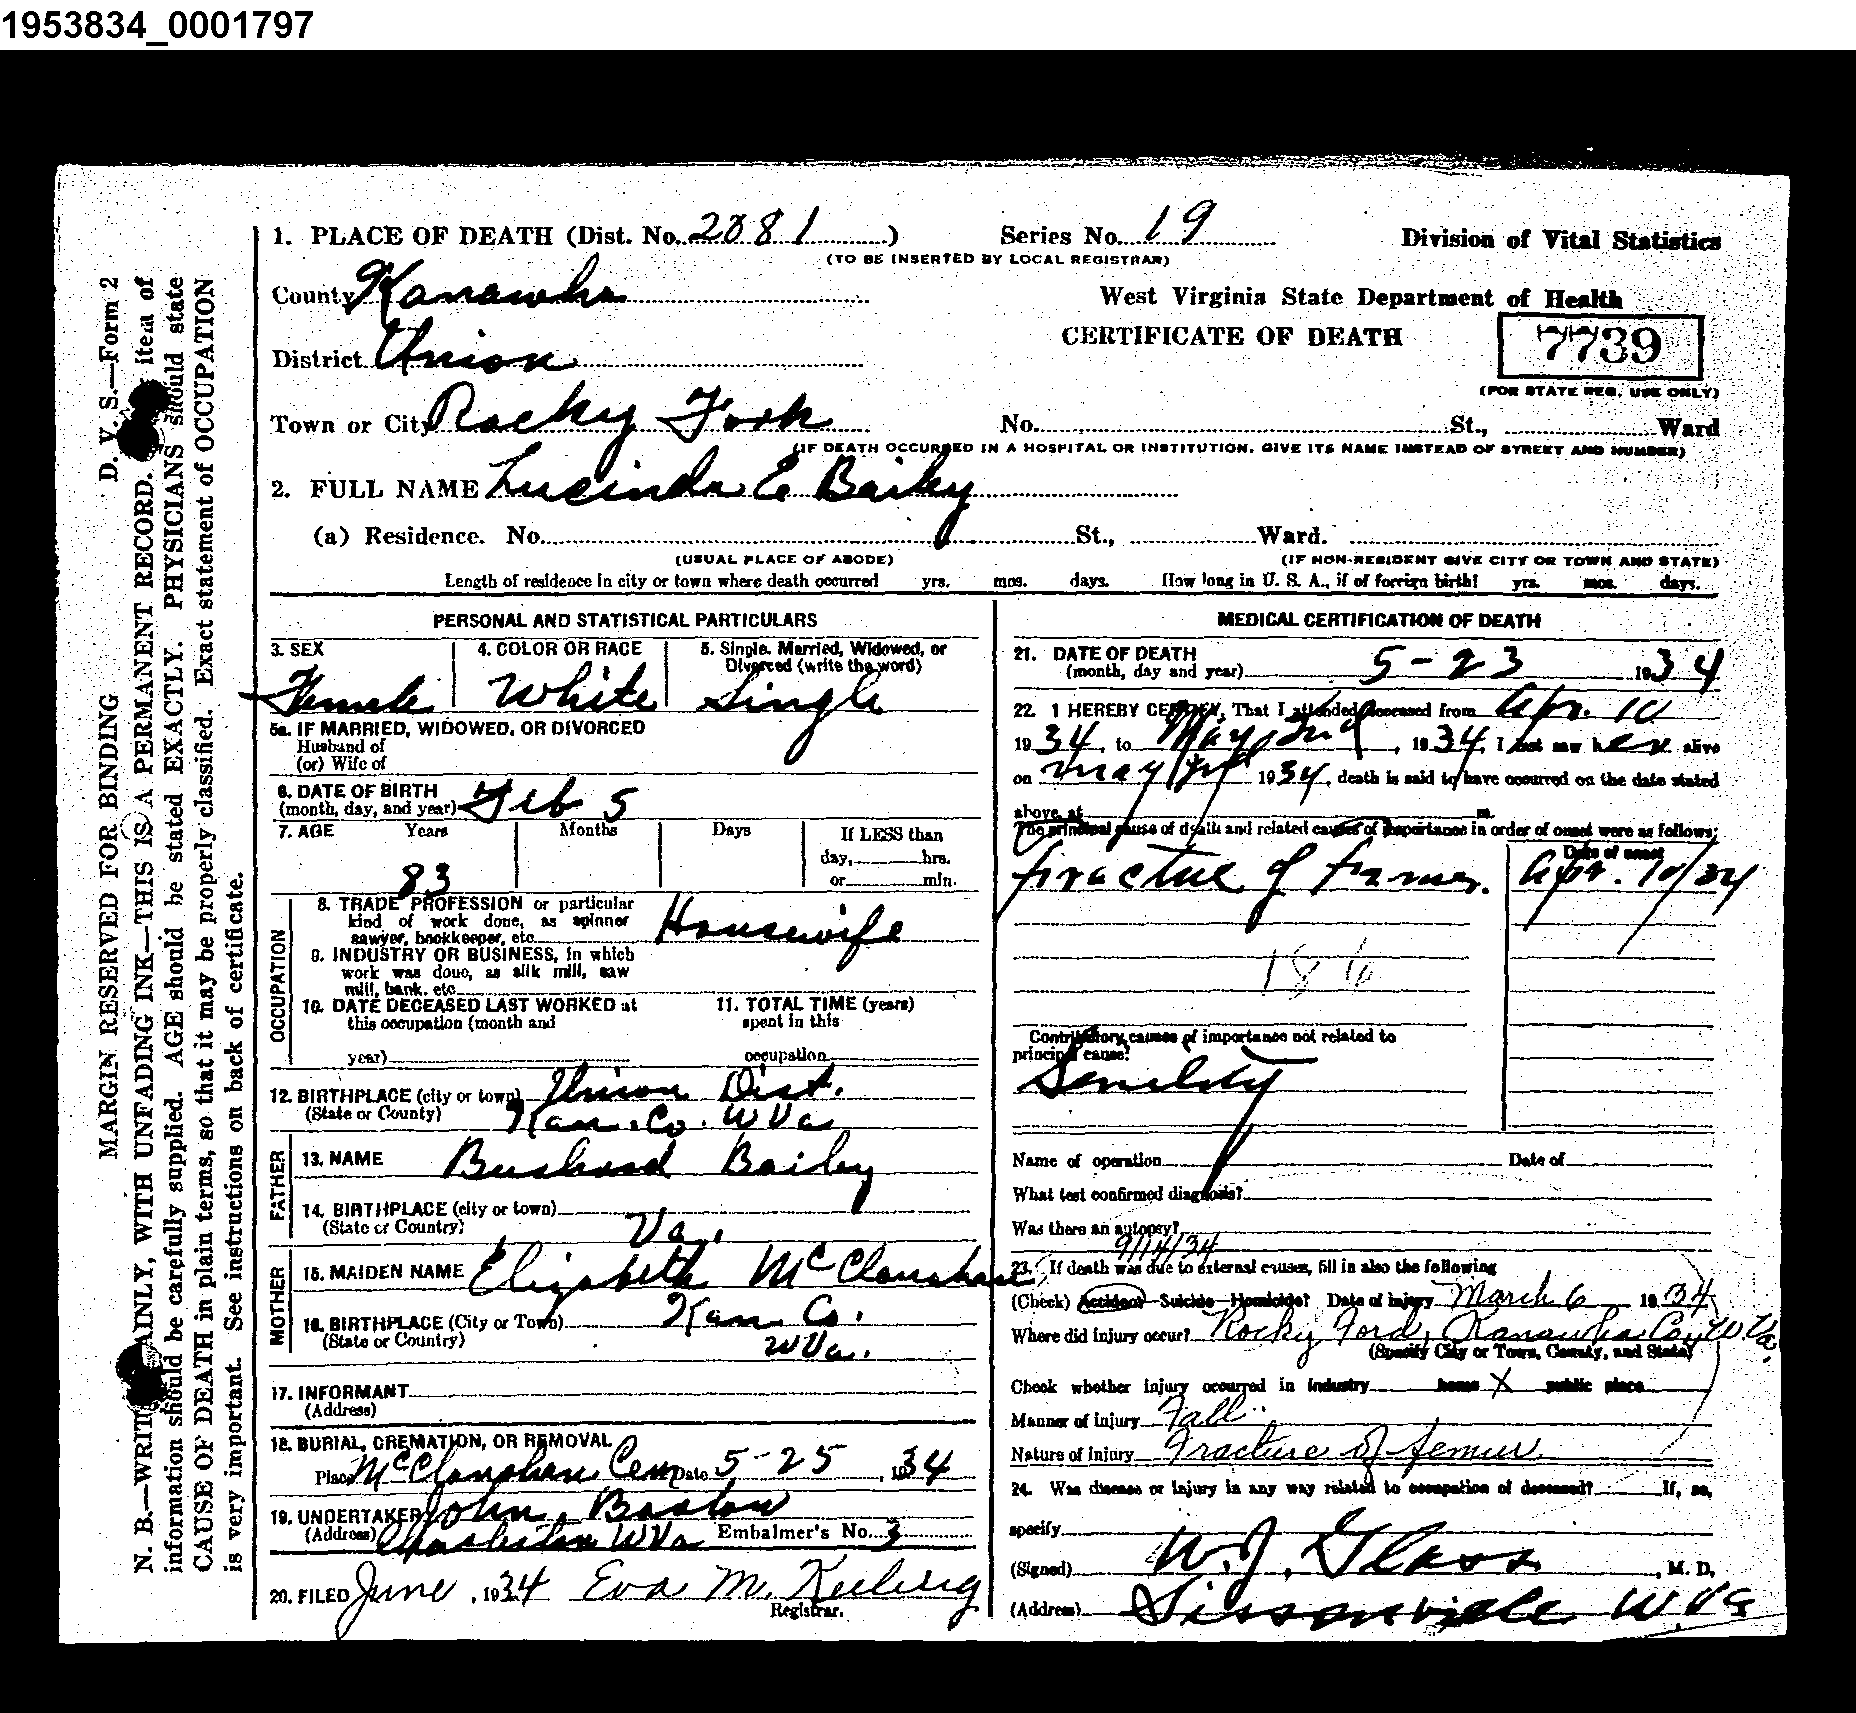 1953834_0001797
1. PLACE OF DEATH (Dist. No. 2881) Series No. 19 Division of Vital Statistics
(TO BE INSERTED BY LOCAL REGISTRAR)
County Kanawha West Virginia State Department of Health
CERTIFICATE OF DEATH 7739
District Union
(FOR STATE REG. USE ONLY)
Town or City Rocky Fork No. St., Ward
(IF DEATH OCCURRED IN A HOSPITAL OR INSTITUTION, GIVE ITS NAME INSTEAD OF STREET AND NUMBER)
2. FULL NAME Lucinda E Bailey
(a) Residence. No. St., Ward.
(USUAL PLACE OF ABODE) (IF NON-RESIDENT GIVE CITY OR TOWN AND STATE)
Length of residence in city or town where death occurred yrs. mos. days. How long in U. S. A., if of foreign birth? yrs. mos. days.
PERSONAL AND STATISTICAL PARTICULARS
3. SEX 4. COLOR OR RACE 5. Single, Married, Widowed, or
Divorced (write the word)
Female White Single
5a. IF MARRIED, WIDOWED, OR DIVORCED
Husband of
(or) Wife of
6. DATE OF BIRTH
(month, day, and year) Feb 5
7. AGE Years Months Days If LESS than
day, hrs.
83 or min.
OCCUPATION
8. TRADE PROFESSION or particular
kind of work done, as spinner
sawyer, bookkeeper, etc. Housewife
9. INDUSTRY OR BUSINESS, in which
work was done, as silk mill, saw
mill, bank, etc.
10. DATE DECEASED LAST WORKED at 11. TOTAL TIME (years)
this occupation (month and spent in this
year) occupation
12. BIRTHPLACE (city or town) Union Dist.
(State or County) Kan. Co. W Va
FATHER
13. NAME Bushrod Bailey
14. BIRTHPLACE (city or town)
(State or Country) Va.
MOTHER
15. MAIDEN NAME Elizabeth McClanahan
16. BIRTHPLACE (City or Town) Kan Co.
(State or Country) W Va.
17. INFORMANT
(Address)
18. BURIAL, CREMATION, OR REMOVAL
Place McClanahan Cem Date 5-25, 1934
19. UNDERTAKER John Bastow
(Address) Charleston W Va Embalmer's No. 3
20. FILED June, 1934 Eva M.
Registrar.
MEDICAL CERTIFICATION OF DEATH
21. DATE OF DEATH
(month, day and year) 5-23 1934
22. I HEREBY CERTIFY, That I attended deceased from Apr. 10
1934, to May 1934, I last saw her alive
on May 1934, death is said to have occurred on the date stated
above, at m.
The principal cause of death and related causes of importance in order of onset were as follows:
Date of onset
fractue of femer. Apr. 10/34
186
Contributory causes of importance not related to
principal cause:
Senility
Name of operation Date of
What test confirmed diagnosis?
Was there an autopsy?
9/14/34
23. If death was due to external causes, fill in also the following
(Check) Accident Suicide Homicide? Date of injury March 6 1934
Where did injury occur? Rocky Ford, Kanawha Co, W Va.
(Specify City or Town, County, and State)
Check whether injury occurred in industry home X public place
Manner of injury Fall
Nature of injury Fracture of femur
24. Was disease or injury in any way related to occupation of deceased? If, so,
specify
(Signed) W. J. Glass, M. D,
(Address) Sissonville W. Va
D. V. S.—Form 2
MARGIN RESERVED FOR BINDING
N. B.—WRITE PLAINLY, WITH UNFADING INK—THIS IS A PERMANENT RECORD. item of
information should be carefully supplied. AGE should be stated EXACTLY. PHYSICIANS should state
CAUSE OF DEATH in plain terms, so that it may be properly classified. Exact statement of OCCUPATION
is very important. See instructions on back of certificate.